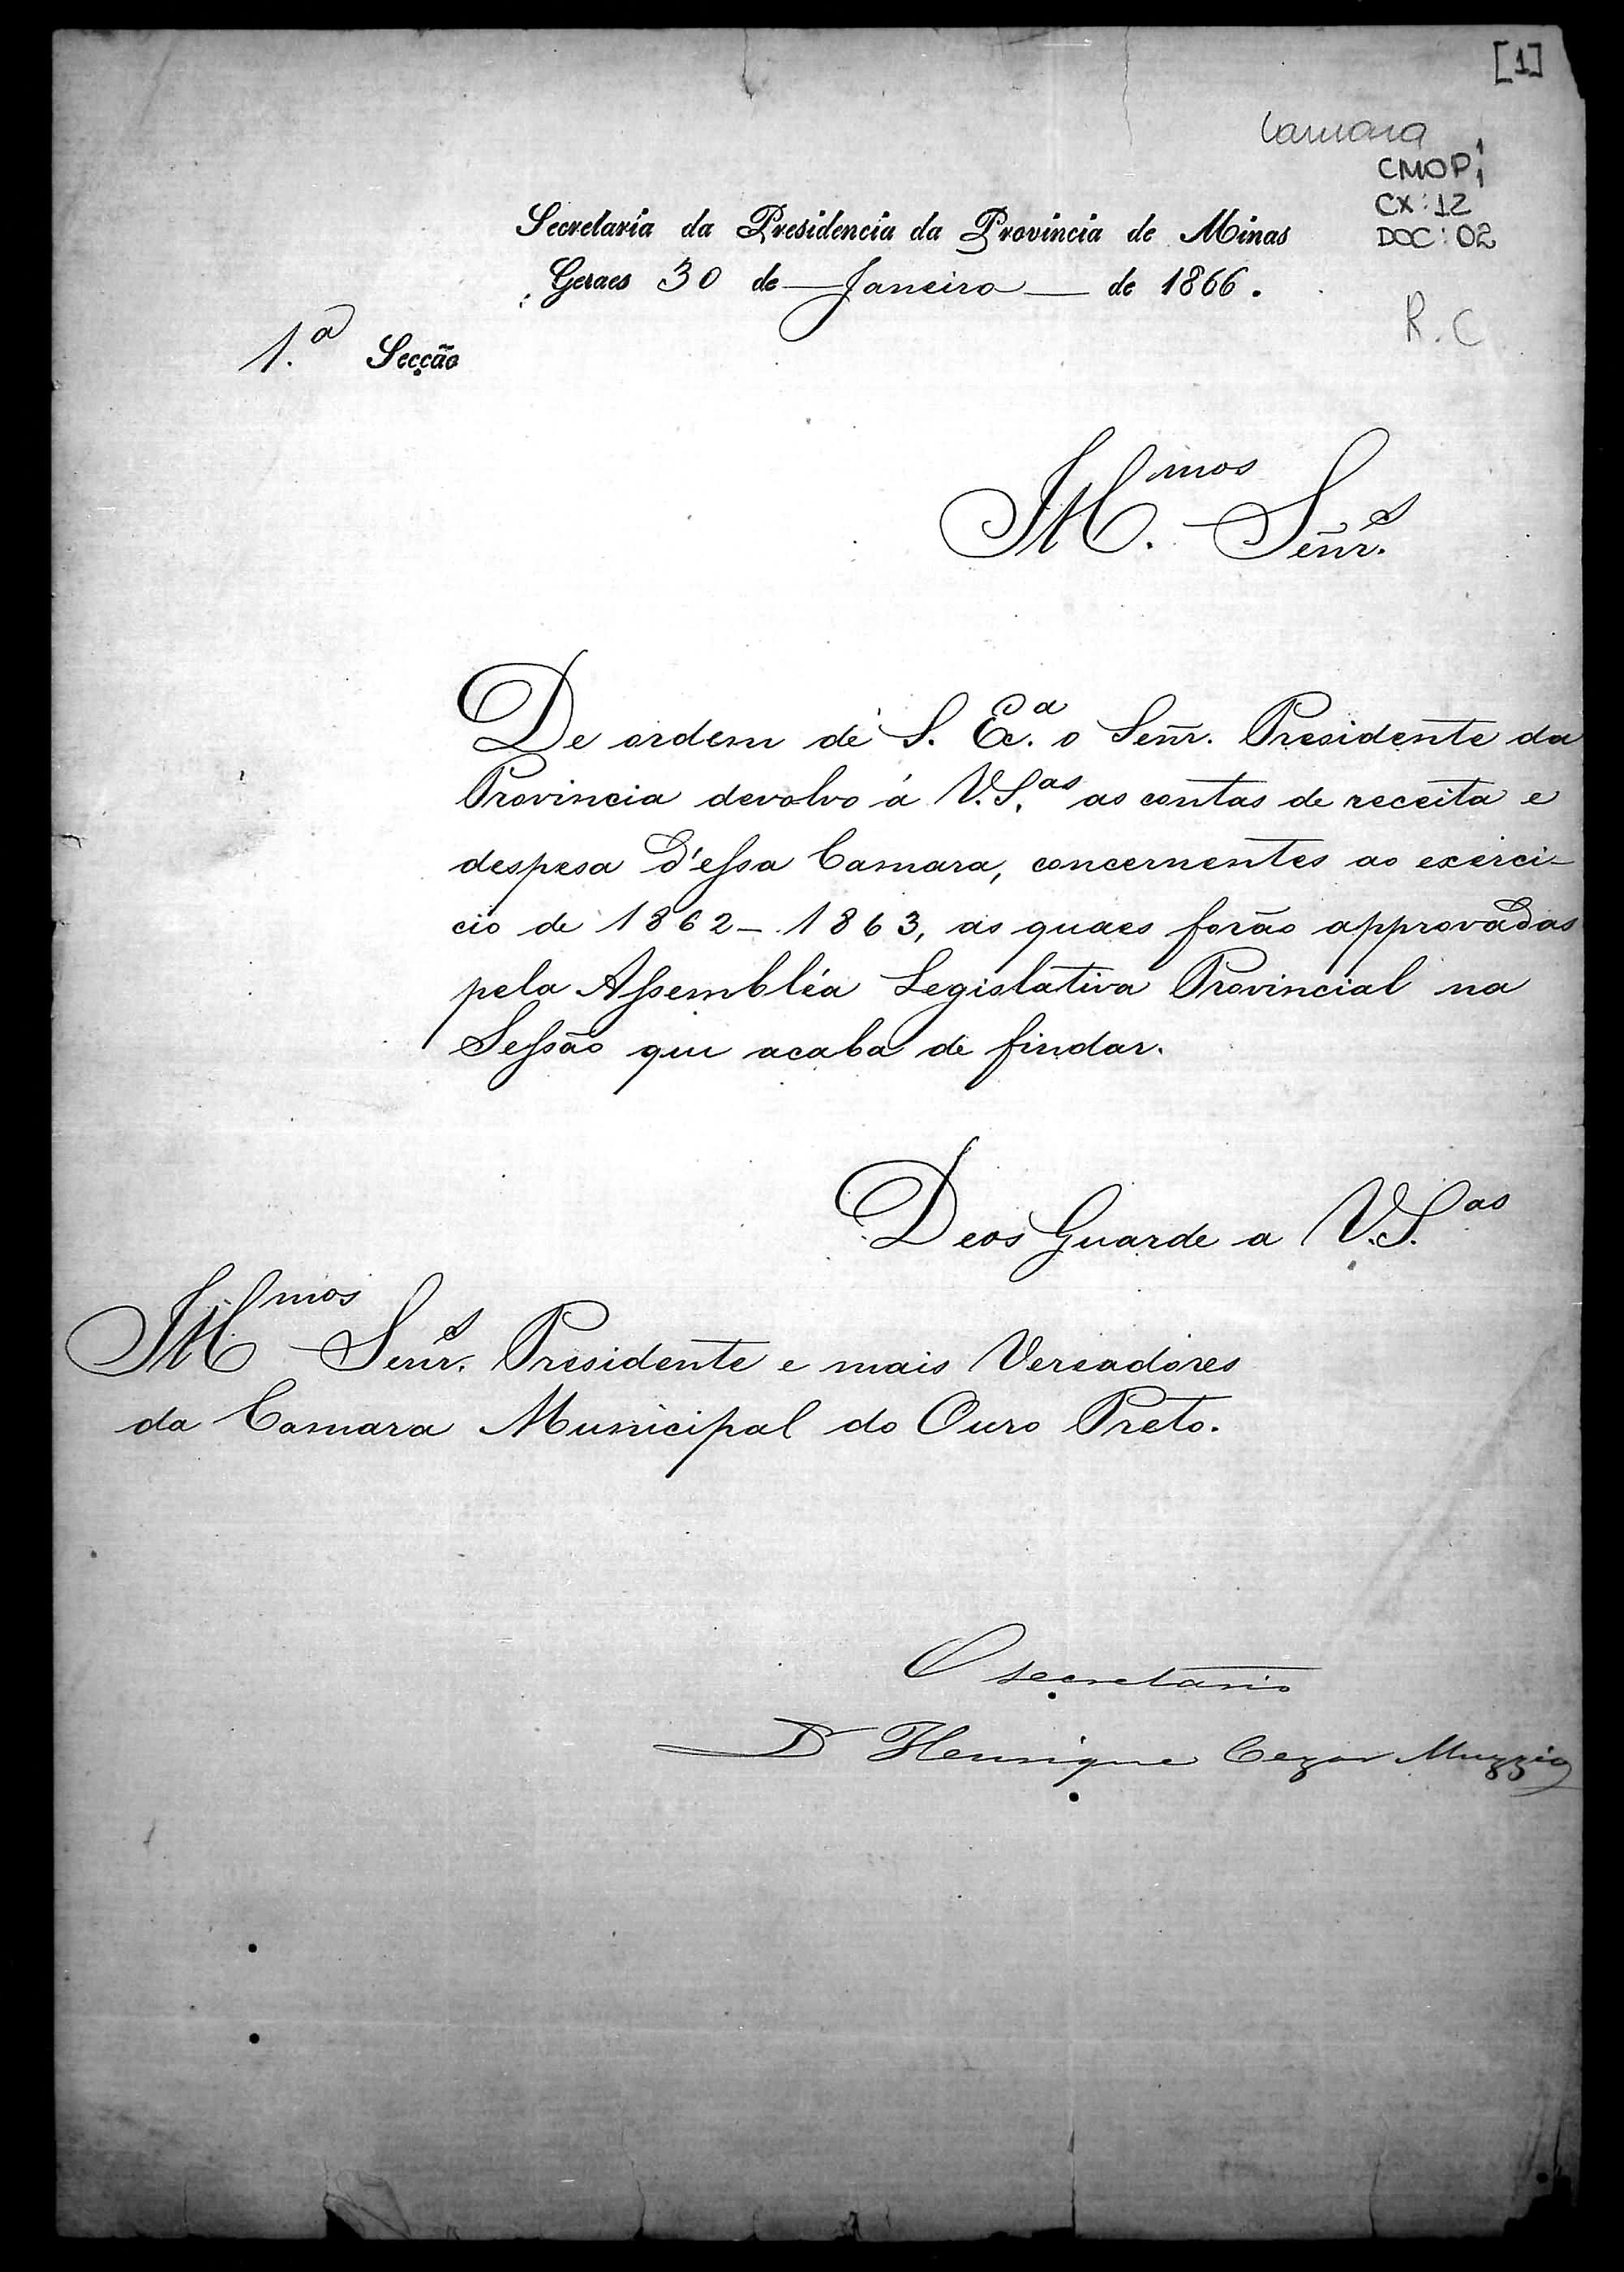 [1]
Camara
CMOP 1
CX: 12
DOC: 02
Secretaria da Presidencia da Provincia de Minas
Geraes 30 de Janeiro de 1866.
R. C
1.ª Secção
Ill.mos Senr.s
De ordem de S. Ex.a o Senr. Presidente da
Provincia devolvo á V.S.as as contas de receita e
despesa d'essa Camara, concernentes ao exerci-
cio de 1862-1863, as quaes forão approvadas
pela Assembléa Legislativa Provincial na
Sessão que acaba de findar.
Deos Guarde a V.S.as
Ill.mos Senr.s Presidente e mais Vereadores
da Camara Municipal do Ouro Preto.
O secretario
Dr Henrique Cezar Muzzio